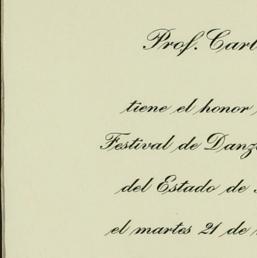 Prof. Carl
tiene el honor
Festival de Danz
del Estado de
el martes 21 de